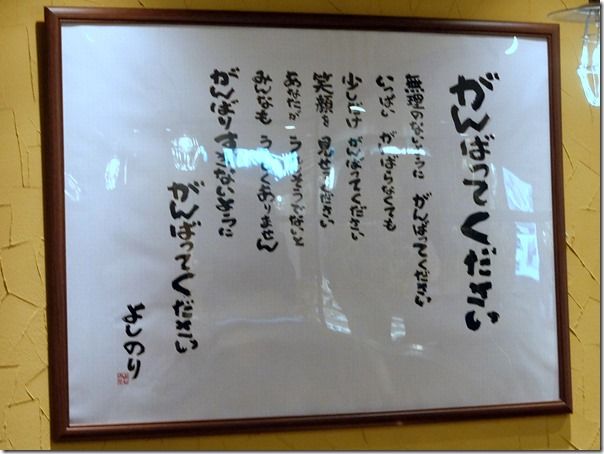 がんばってください
無理のないように がんばってください
いっぱい がんばらなくても
少しだけ がんばってください
笑顔を 見せてください
あなたが うれしそうでないと
みんなも うれしくありません
がんばりすぎないように
がんばってください
よしのり